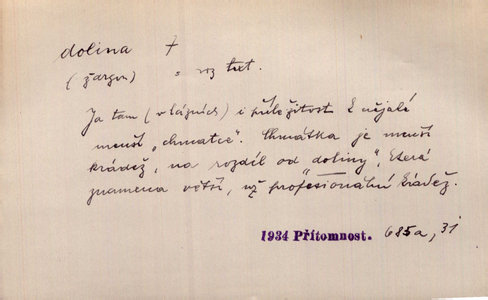 dolina 7
(žargon) = viz text.
Je tam (v lázních) i příležitost k nějaké
menší „chmatce". Chmátka je menší
krádež, na rozdíl od „doliny", která
znamená větší, už profesionální krádež.
1934 Přítomnost. 685a, 31